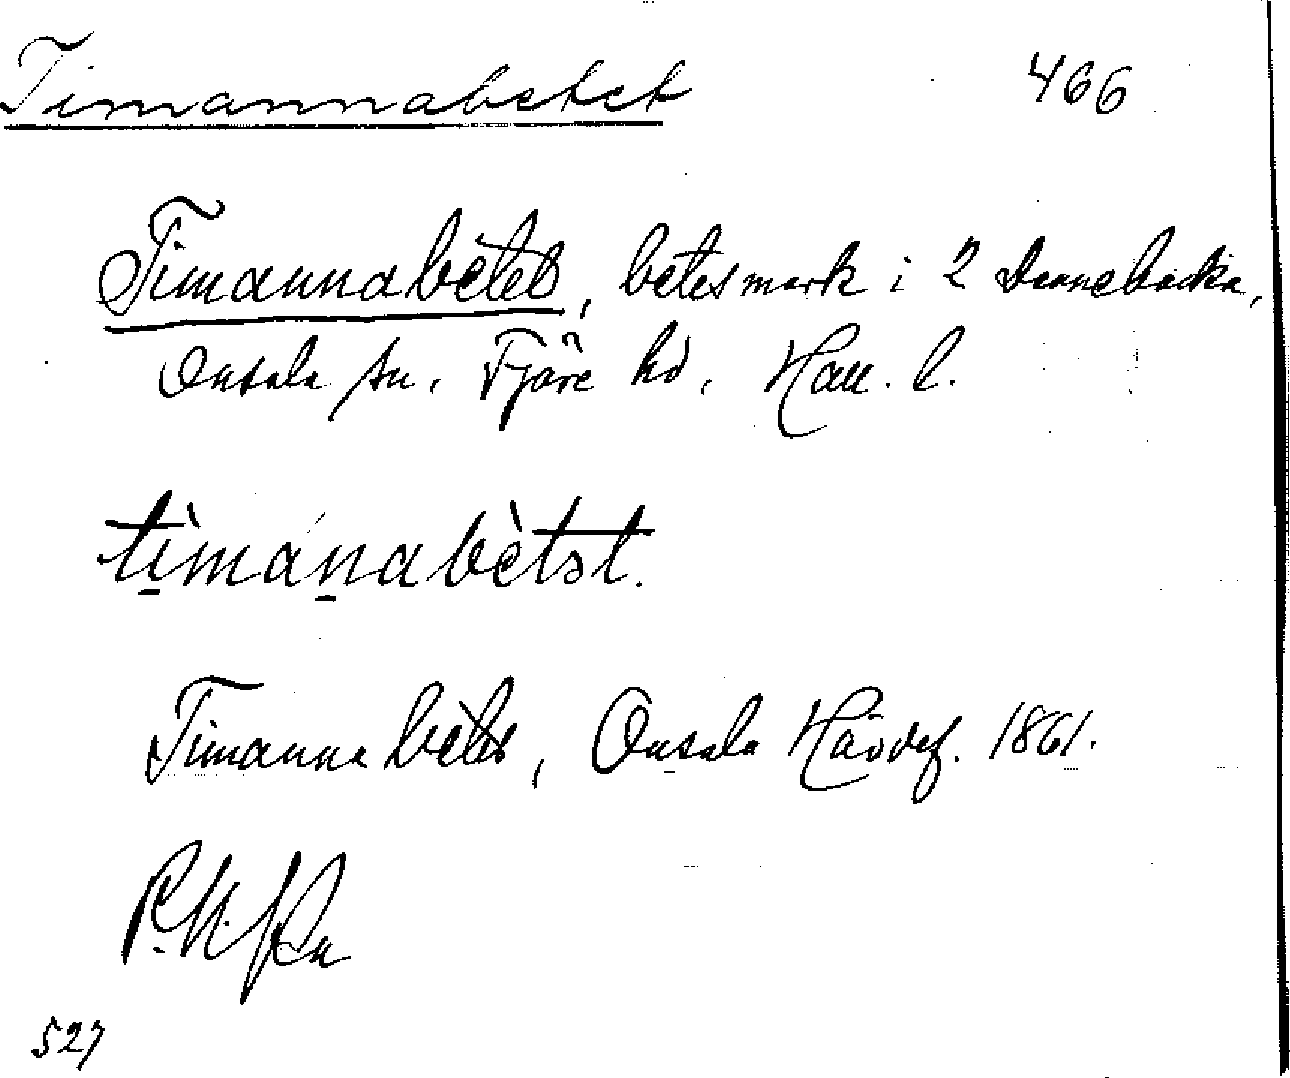 Timannabetet 466
Timannabetet, betesmark i 2 Dannebacka,
Onsala sn. Fjäre hd, Hall. l.
tìmánabètət.
Timanna betet, Onsala Hävdef. 1861.
527